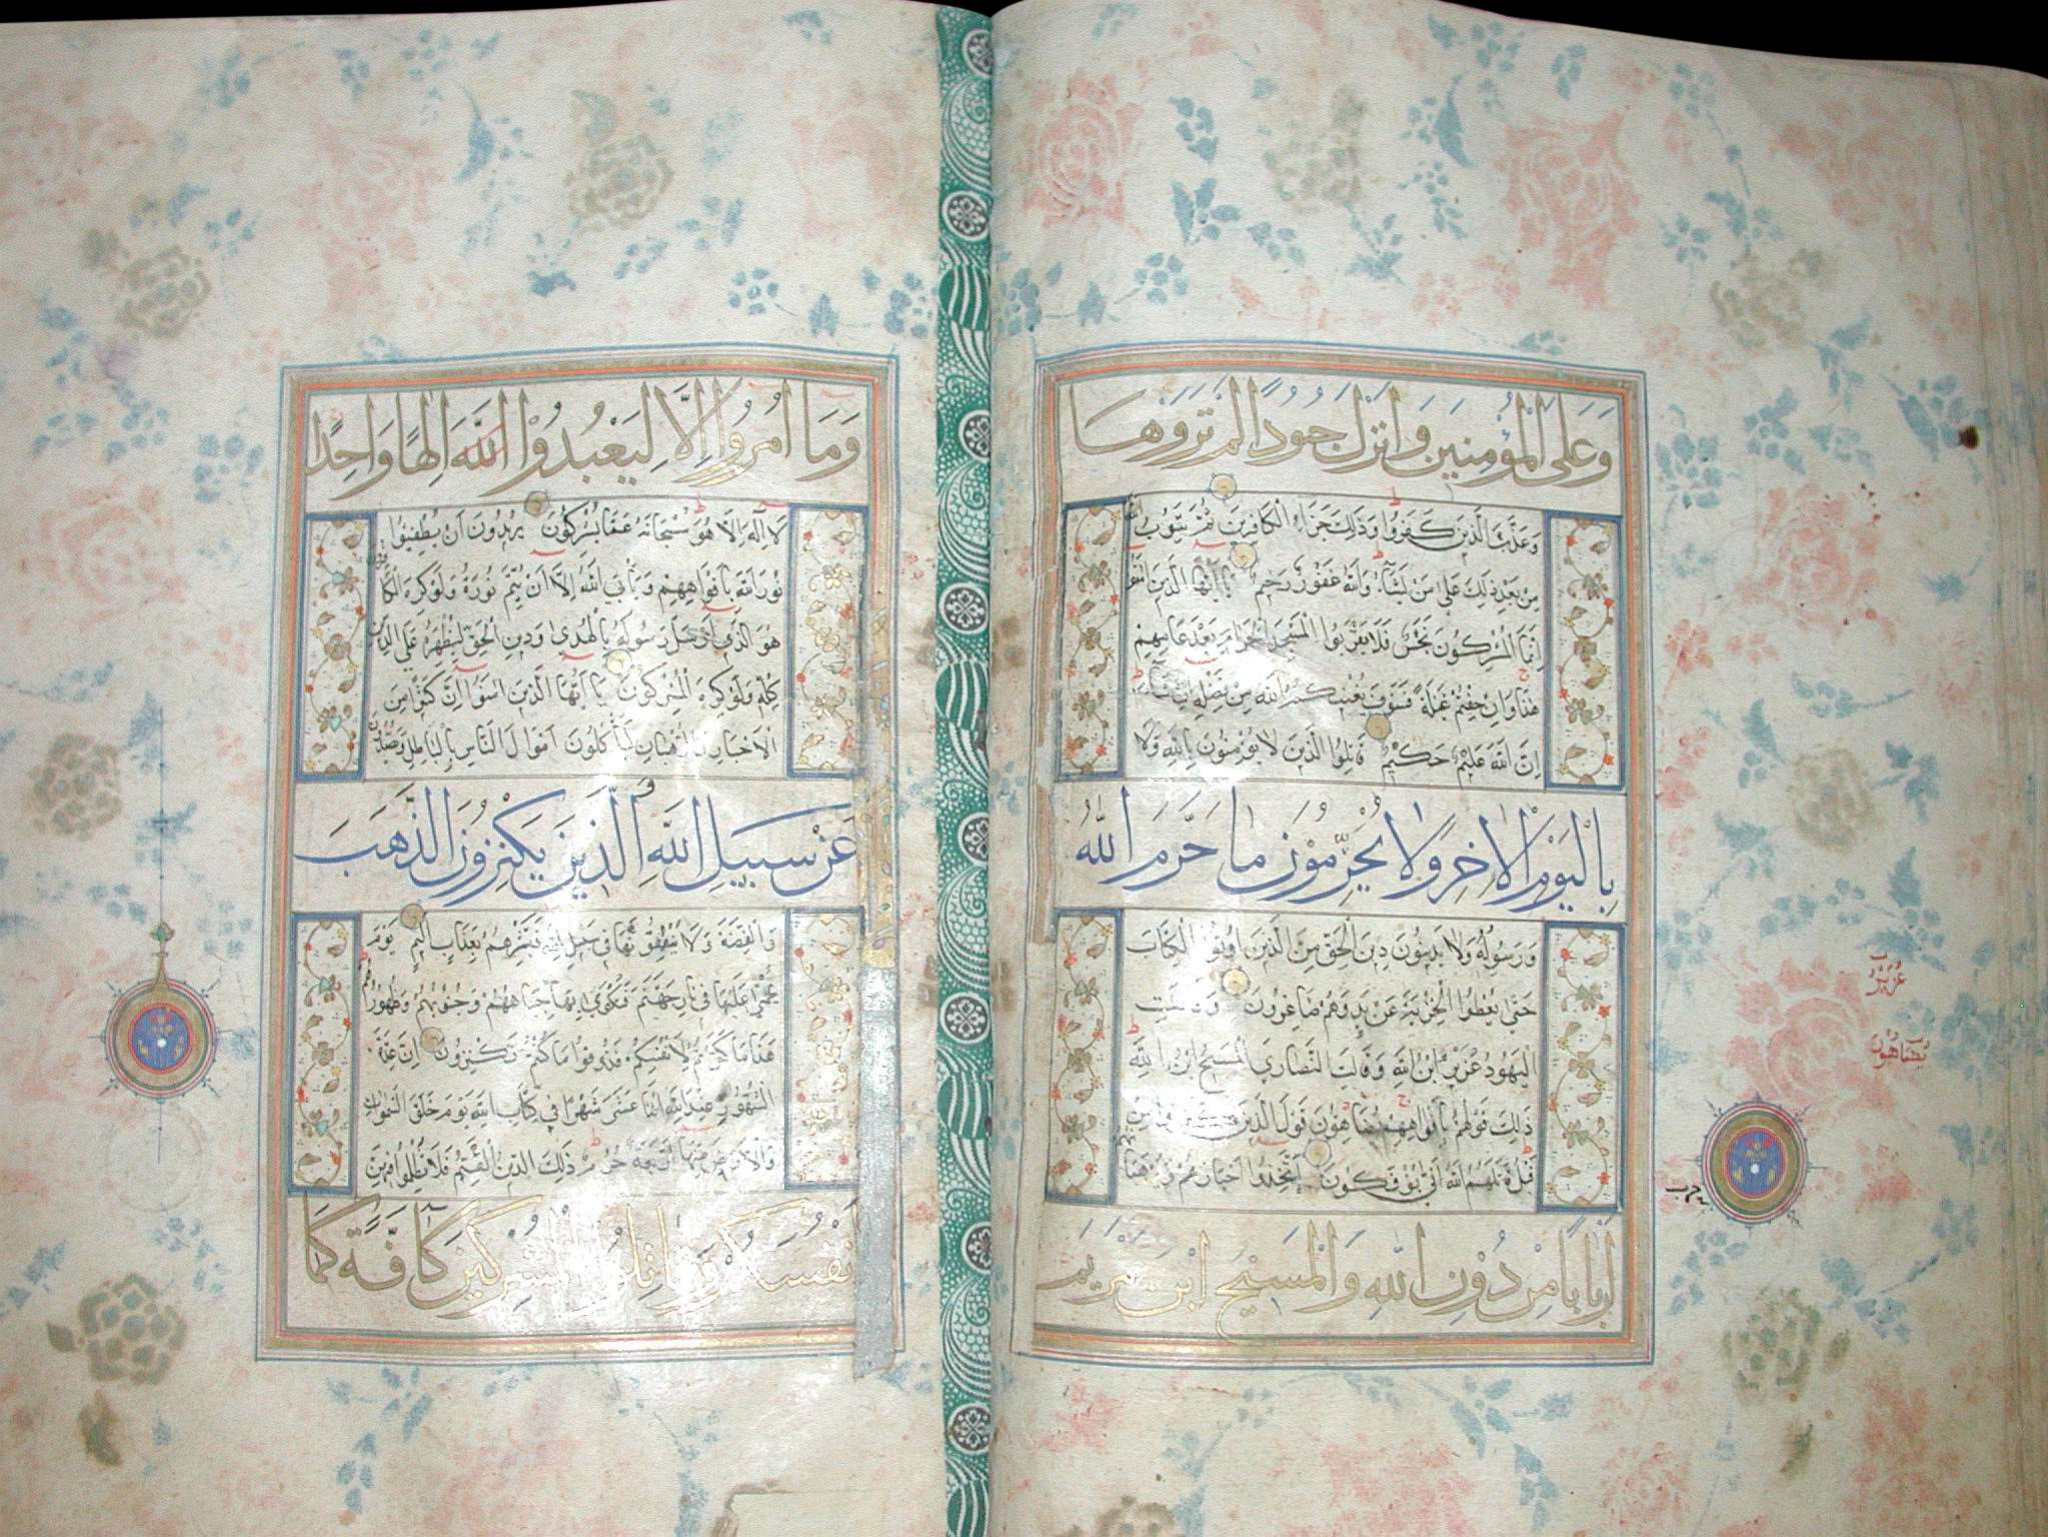 وَعَلَى الْمُؤْمِنِينَ وَأَنْزَلَ جُنُودًا لَمْ تَرَوْهَا
وَعَذَّبَ الَّذِينَ كَفَرُوا وَذَلِكَ جَزَاءُ الْكَافِرِينَ ثُمَّ يَتُوبُ اللَّهُ
مِنْ بَعْدِ ذَلِكَ عَلَى مَنْ يَشَاءُ وَاللَّهُ غَفُورٌ رَحِيمٌ يَا أَيُّهَا الَّذِينَ آمَنُوا
إِنَّمَا الْمُشْرِكُونَ نَجَسٌ فَلَا يَقْرَبُوا الْمَسْجِدَ الْحَرَامَ بَعْدَ عَامِهِمْ
هَذَا وَإِنْ خِفْتُمْ عَيْلَةً فَسَوْفَ يُغْنِيكُمُ اللَّهُ مِنْ فَضْلِهِ إِنْ شَاءَ
إِنَّ اللَّهَ عَلِيمٌ حَكِيمٌ قَاتِلُوا الَّذِينَ لَا يُؤْمِنُونَ بِاللَّهِ وَلَا
بِالْيَوْمِ الْآخِرِ وَلَا يُحَرِّمُونَ مَا حَرَّمَ اللَّهُ
وَرَسُولُهُ وَلَا يَدِينُونَ دِينَ الْحَقِّ مِنَ الَّذِينَ أُوتُوا الْكِتَابَ
حَتَّى يُعْطُوا الْجِزْيَةَ عَنْ يَدٍ وَهُمْ صَاغِرُونَ وَقَالَتِ
الْيَهُودُ عُزَيْرٌ ابْنُ اللَّهِ وَقَالَتِ النَّصَارَى الْمَسِيحُ ابْنُ اللَّهِ
ذَلِكَ قَوْلُهُمْ بِأَفْوَاهِهِمْ يُضَاهِؤُنَ قَوْلَ الَّذِينَ كَفَرُوا مِنْ
قَبْلُ قَاتَلَهُمُ اللَّهُ أَنَّى يُؤْفَكُونَ اتَّخَذُوا أَحْبَارَهُمْ وَرُهْبَانَهُمْ
أَرْبَابًا مِنْ دُونِ اللَّهِ وَالْمَسِيحَ ابْنَ مَرْيَمَ
عُزَيْرُ
يُضَاهُونَ
حزب
وَمَا أُمِرُوا إِلَّا لِيَعْبُدُوا اللَّهَ إِلَهًا وَاحِدًا
لَا إِلَهَ إِلَّا هُوَ سُبْحَانَهُ عَمَّا يُشْرِكُونَ يُرِيدُونَ أَنْ يُطْفِئُوا
نُورَ اللَّهِ بِأَفْوَاهِهِمْ وَيَأْبَى اللَّهُ إِلَّا أَنْ يُتِمَّ نُورَهُ وَلَوْ كَرِهَ الْكَافِرُونَ
هُوَ الَّذِي أَرْسَلَ رَسُولَهُ بِالْهُدَى وَدِينِ الْحَقِّ لِيُظْهِرَهُ عَلَى الدِّينِ
كُلِّهِ وَلَوْ كَرِهَ الْمُشْرِكُونَ يَا أَيُّهَا الَّذِينَ آمَنُوا إِنَّ كَثِيرًا مِنَ
الْأَحْبَارِ وَالرُّهْبَانِ لَيَأْكُلُونَ أَمْوَالَ النَّاسِ بِالْبَاطِلِ وَيَصُدُّونَ
عَنْ سَبِيلِ اللَّهِ وَالَّذِينَ يَكْنِزُونَ الذَّهَبَ
وَالْفِضَّةَ وَلَا يُنْفِقُونَهَا فِي سَبِيلِ اللَّهِ فَبَشِّرْهُمْ بِعَذَابٍ أَلِيمٍ يَوْمَ
يُحْمَى عَلَيْهَا فِي نَارِ جَهَنَّمَ فَتُكْوَى بِهَا جِبَاهُهُمْ وَجُنُوبُهُمْ وَظُهُورُهُمْ
هَذَا مَا كَنَزْتُمْ لِأَنْفُسِكُمْ فَذُوقُوا مَا كُنْتُمْ تَكْنِزُونَ إِنَّ عِدَّةَ
الشُّهُورِ عِنْدَ اللَّهِ اثْنَا عَشَرَ شَهْرًا فِي كِتَابِ اللَّهِ يَوْمَ خَلَقَ السَّمَوَاتِ
وَالْأَرْضَ مِنْهَا أَرْبَعَةٌ حُرُمٌ ذَلِكَ الدِّينُ الْقَيِّمُ فَلَا تَظْلِمُوا فِيهِنَّ
أَنْفُسَكُمْ وَقَاتِلُوا الْمُشْرِكِينَ كَافَّةً كَمَا